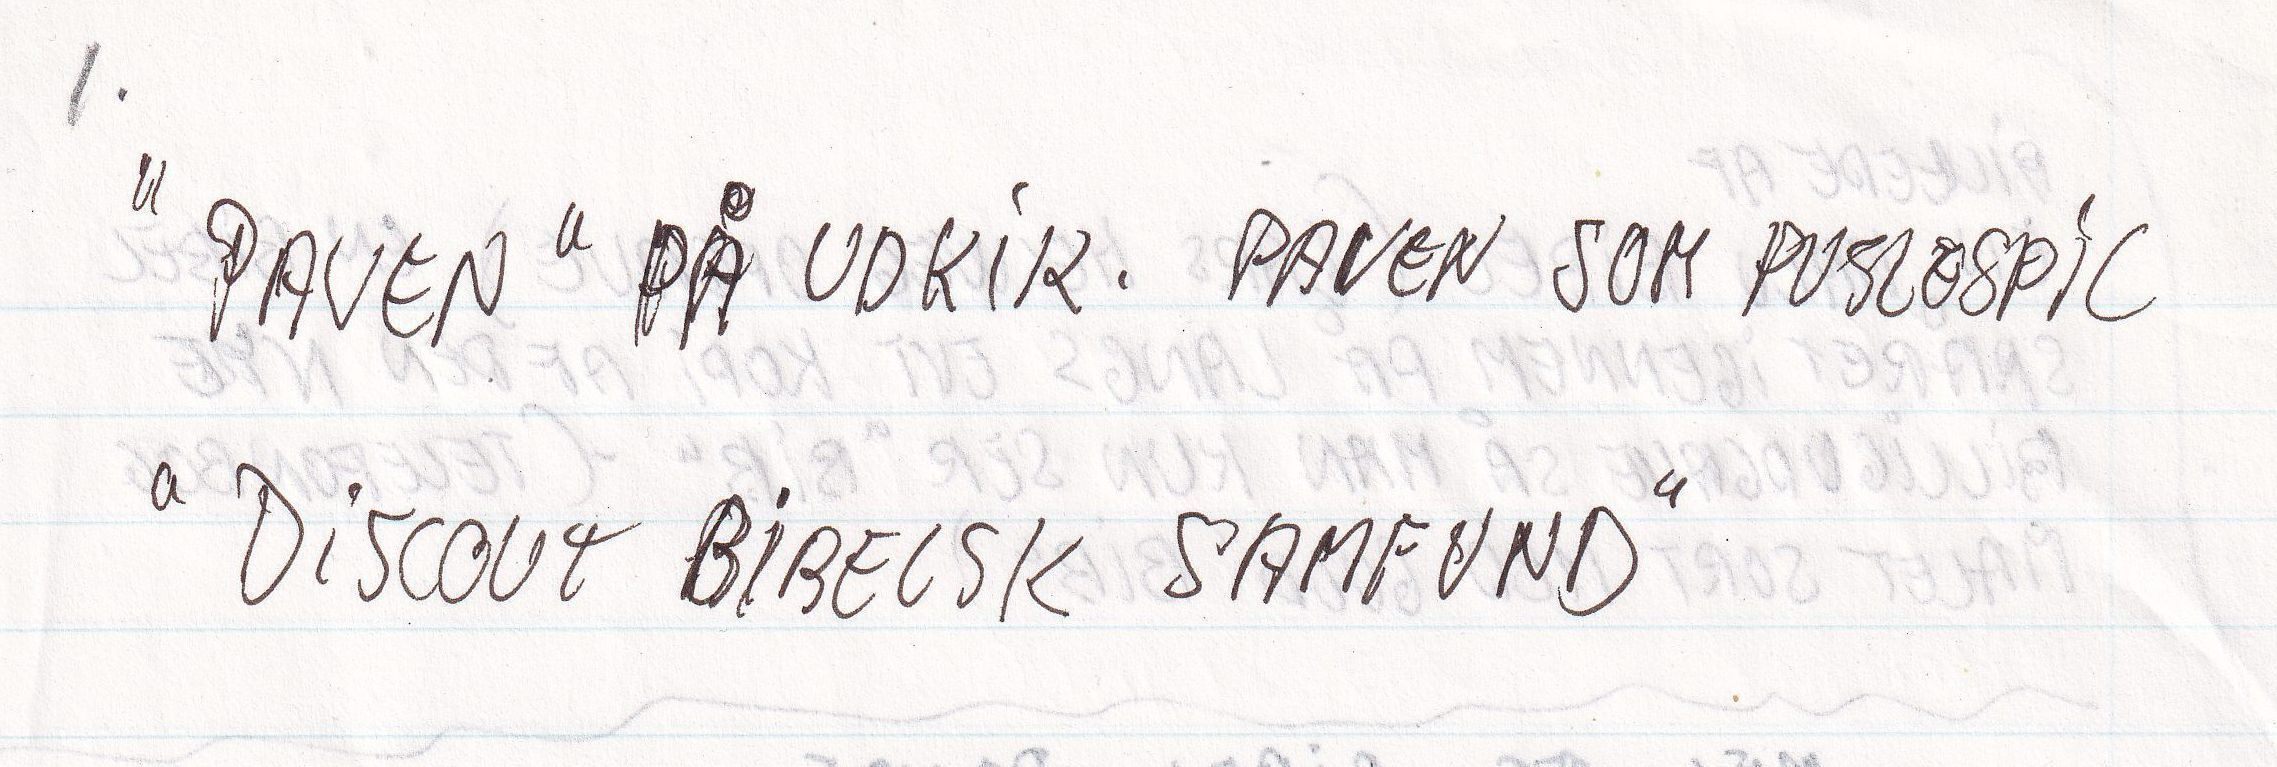 1.
"PAVEN" PÅ UDKIK. PAVEN SOM PUSLESPIL
"DISCOUT BIBELSK SAMFUND"